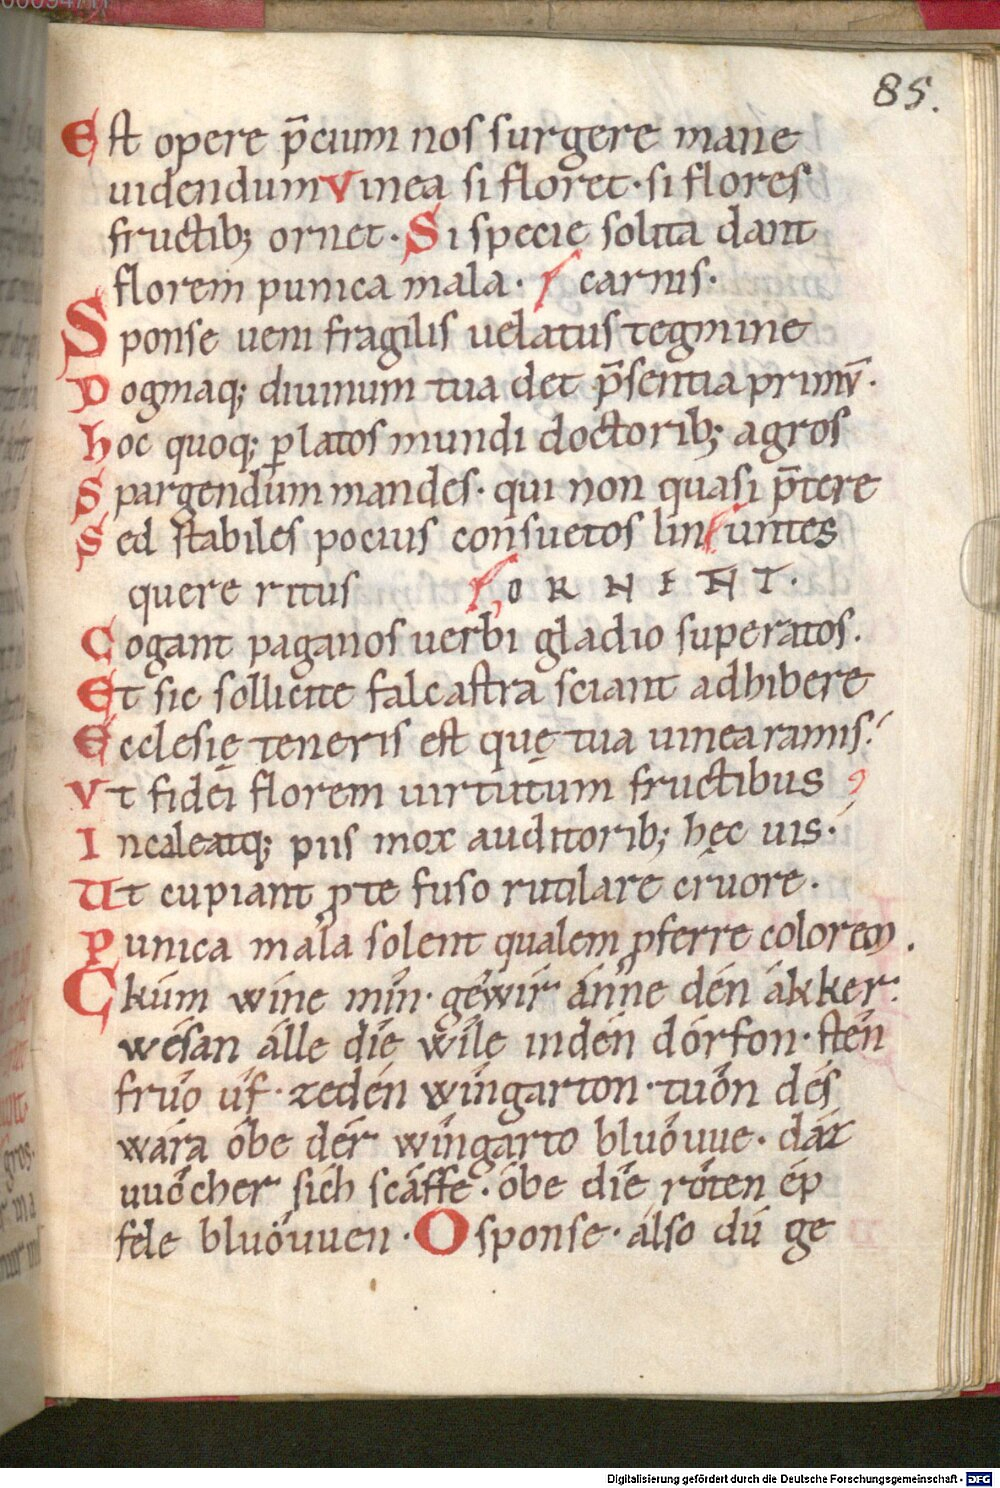 85.
Eſt opere p̄cium nos surgere mane
uidendum Vinea si floret · si flores
fructib; ornet · Si specie solita dant
florem punica mala · carnis ·
Sponse ueni fragilis uelatus tegmine
Dogmaq; diuinum tua det p̄sentia primū ·
hoc quoq; p̲latos mundi doctorib; agros
Spargendum mandes · qui non quasi p̄tere
Sed stabiles pocius consuetos lin untes
quere ritus ORNENT ·
Cogant paganos uerbi gladio superatos ·
Et sic sollicite falcastra sciant adhibere
Ecclesię teneris est quę tua uinea ramis ·
Vt fidei florem uirtutum fructibus
Incaleatq; piis mox auditorib; hęc uis ·
Ut cupiant p̲ te fuso rutilare cruore ·
Punica mala solent qualem p̲ferre colorem ·
Ckúm wine mín · gewír ánne dén ákker ·
wésan álle díe wíle indén dórfon · stén
frúo úf · zedén wíngarton · tuón dés
wára óbe dér wíngarto bluóuue · dáz
uuócher sích scáffe · óbe díe róten ép
fele bluóuuen · O sponse · álso dú ge
Digitalisierung gefördert durch die Deutsche Forschungsgemeinschaft · DFG